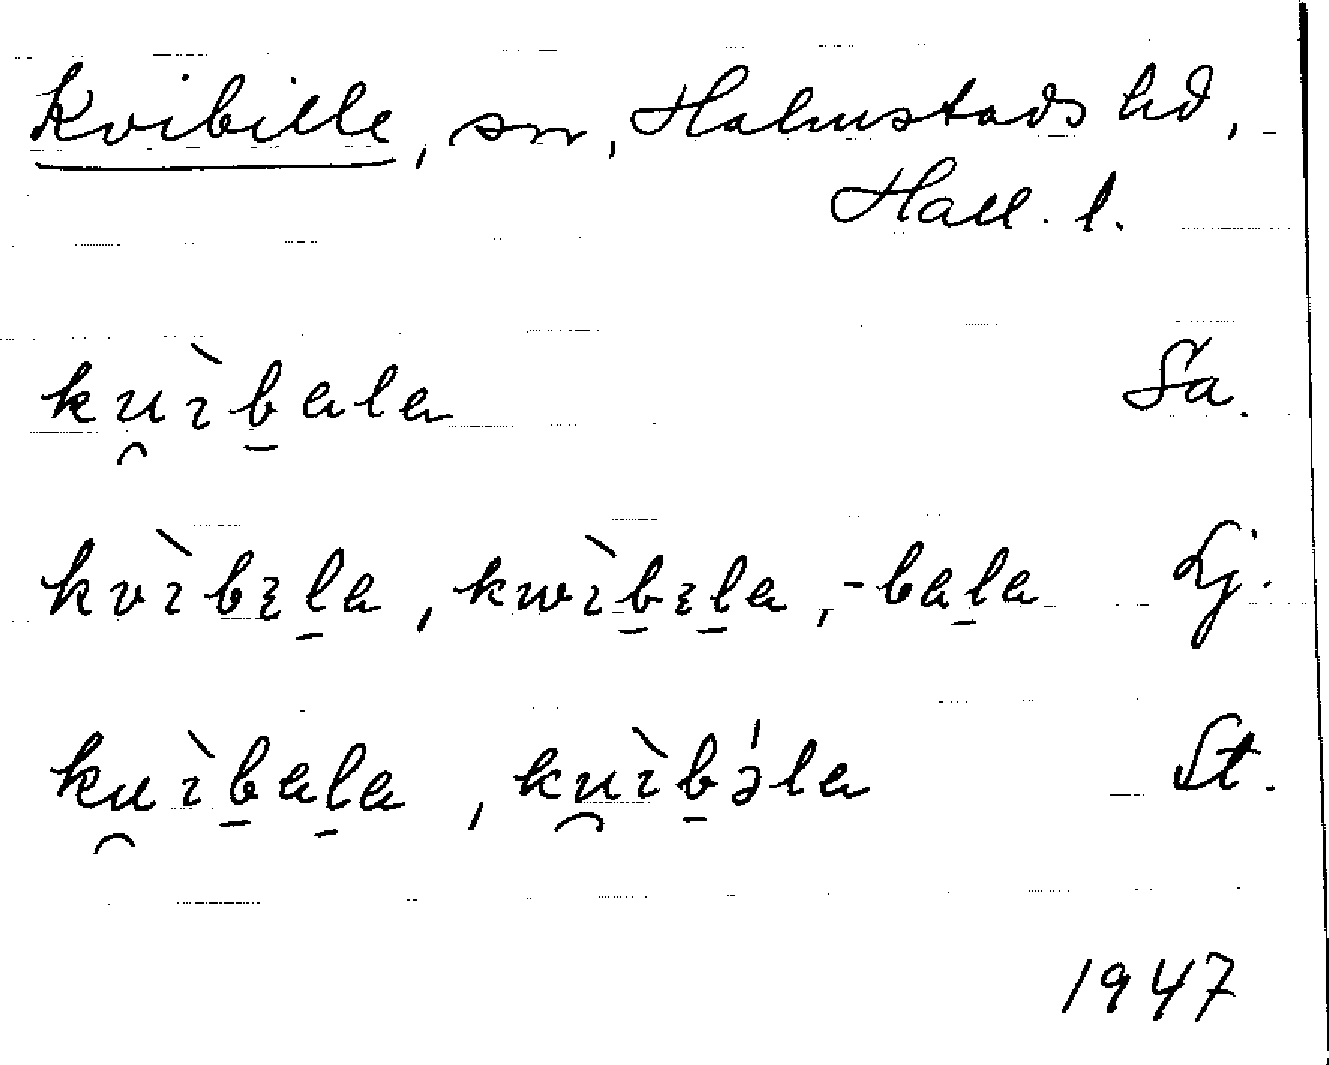 Kvibille, sn, Halmstads hd,
Hall. l.
ku̯ìb̠ala Sa.
kvìbɩl̠a, kwìb̠ɩl̠a, -bal̠a Lj.
ku̯ìb̠al̠a, ku̯ìb̠ə́la St.
1947